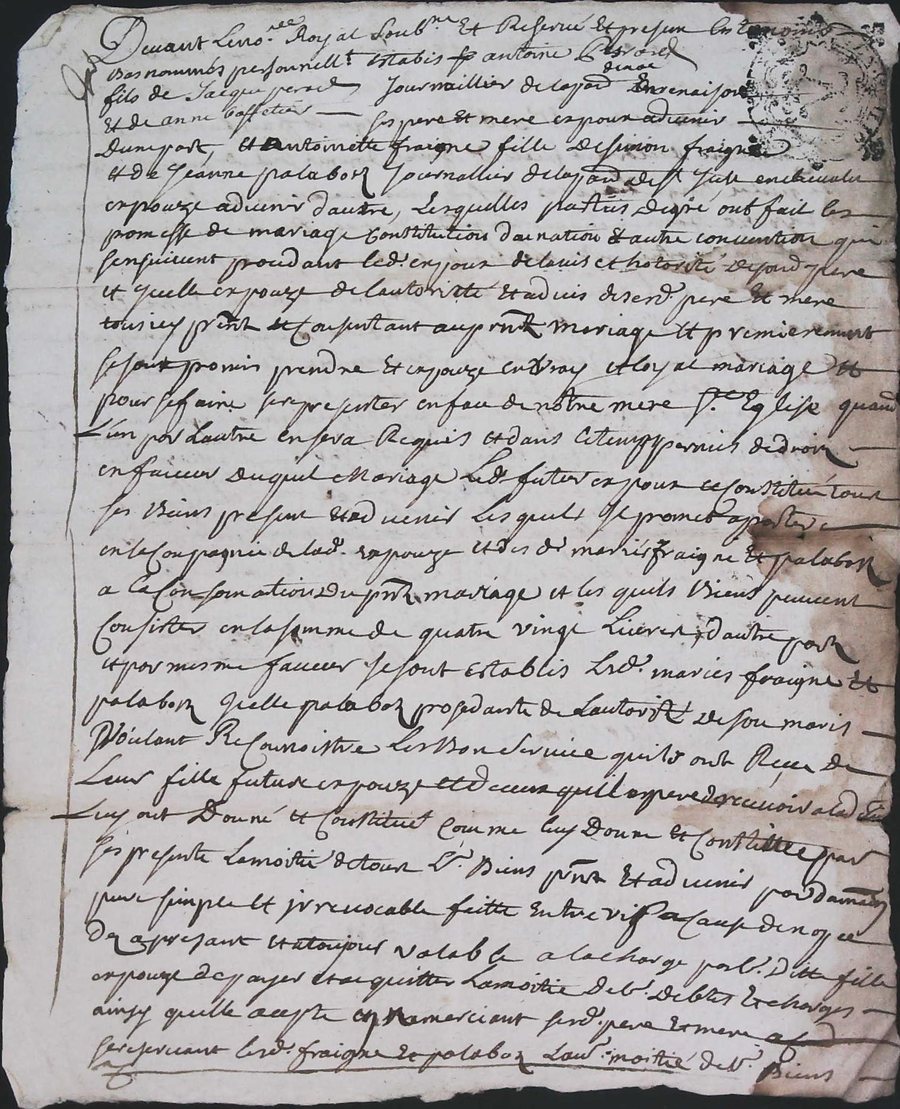 Devant Le no.re Royal Soub.né Et Reservé Et presen les temoins
Bas nommés personnell.t establis sr antoine perard
fils de Jacque perard Journallier de la par. de noe En renaison
Et de anne Caffetier — ses pere Et mere espoux advenir —
Dune part, Et antoinette fraigne fille de simon fraigne
et de Jeanne palabost Journallier de la par. de st
en pouze advenir dautre, Lesquelles parties de gré ont fait les
promesse de mariage Constitution donation & autre convention qui
sensuivent procedant led. espoux de lavis et hotorité de sond. pere
et Jcelle espouze de lautoritté Et advis de sesd. pere Et mere
tous icy prnt Et Consentant au prnt mariage Et premierement
se sont promis prendre Et espouze en vray et loyal mariage Et
pour se faire se representer en face de notre mere Ste Eglise quand
Lun par Lautre en sera Requis Et dans le temps permis de droit —
en faveur duquel Mariage Led. futur espoux se Constitué tous
ses Biens present Et advenir Lesquels Il promet apporter
en la Compagnie de lad. espouze et des d. mariés fraigne Et palabost
a la Consomation du prnt mariage et les quels Biens peuvent
Consister en la somme de quatre vingt Livres, dautre part
et par mesme faveur se sont establis Lesd. mariés fraigne Et
palabost Jcelle palabost procedante de Lautorité de son maris —
Voulant Reconnoistre Les Bon Service quils ont Receu de
Leur fille future espouze et de ceux quil espere de recevoir a ladvenir
Luy ont Donné et Constitué Comme luy Donne et Constitue par
ses presente La moitié de tous Ls. Biens prnt Et advenir par donnation
pure simple et irrevocable faitte Entre vif a Cause de nopce
des a present et a toujour valable a la charge par lad. Ditte fille
espouze de payer et acquitter La moitié de Ls. debtes Et charges —
ainsy quelle acepte en remerciant sesd. pere Et mere
se reservant lesd. fraigne Et palabost Lau.e moitié de Ls. Biens —